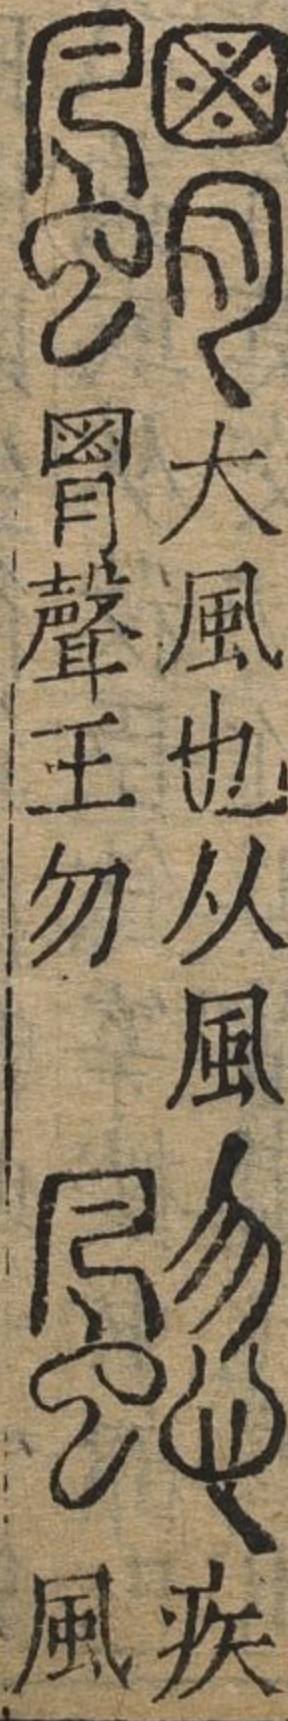 䬑
大風也从風
胃聲王勿
䬍
疾
風